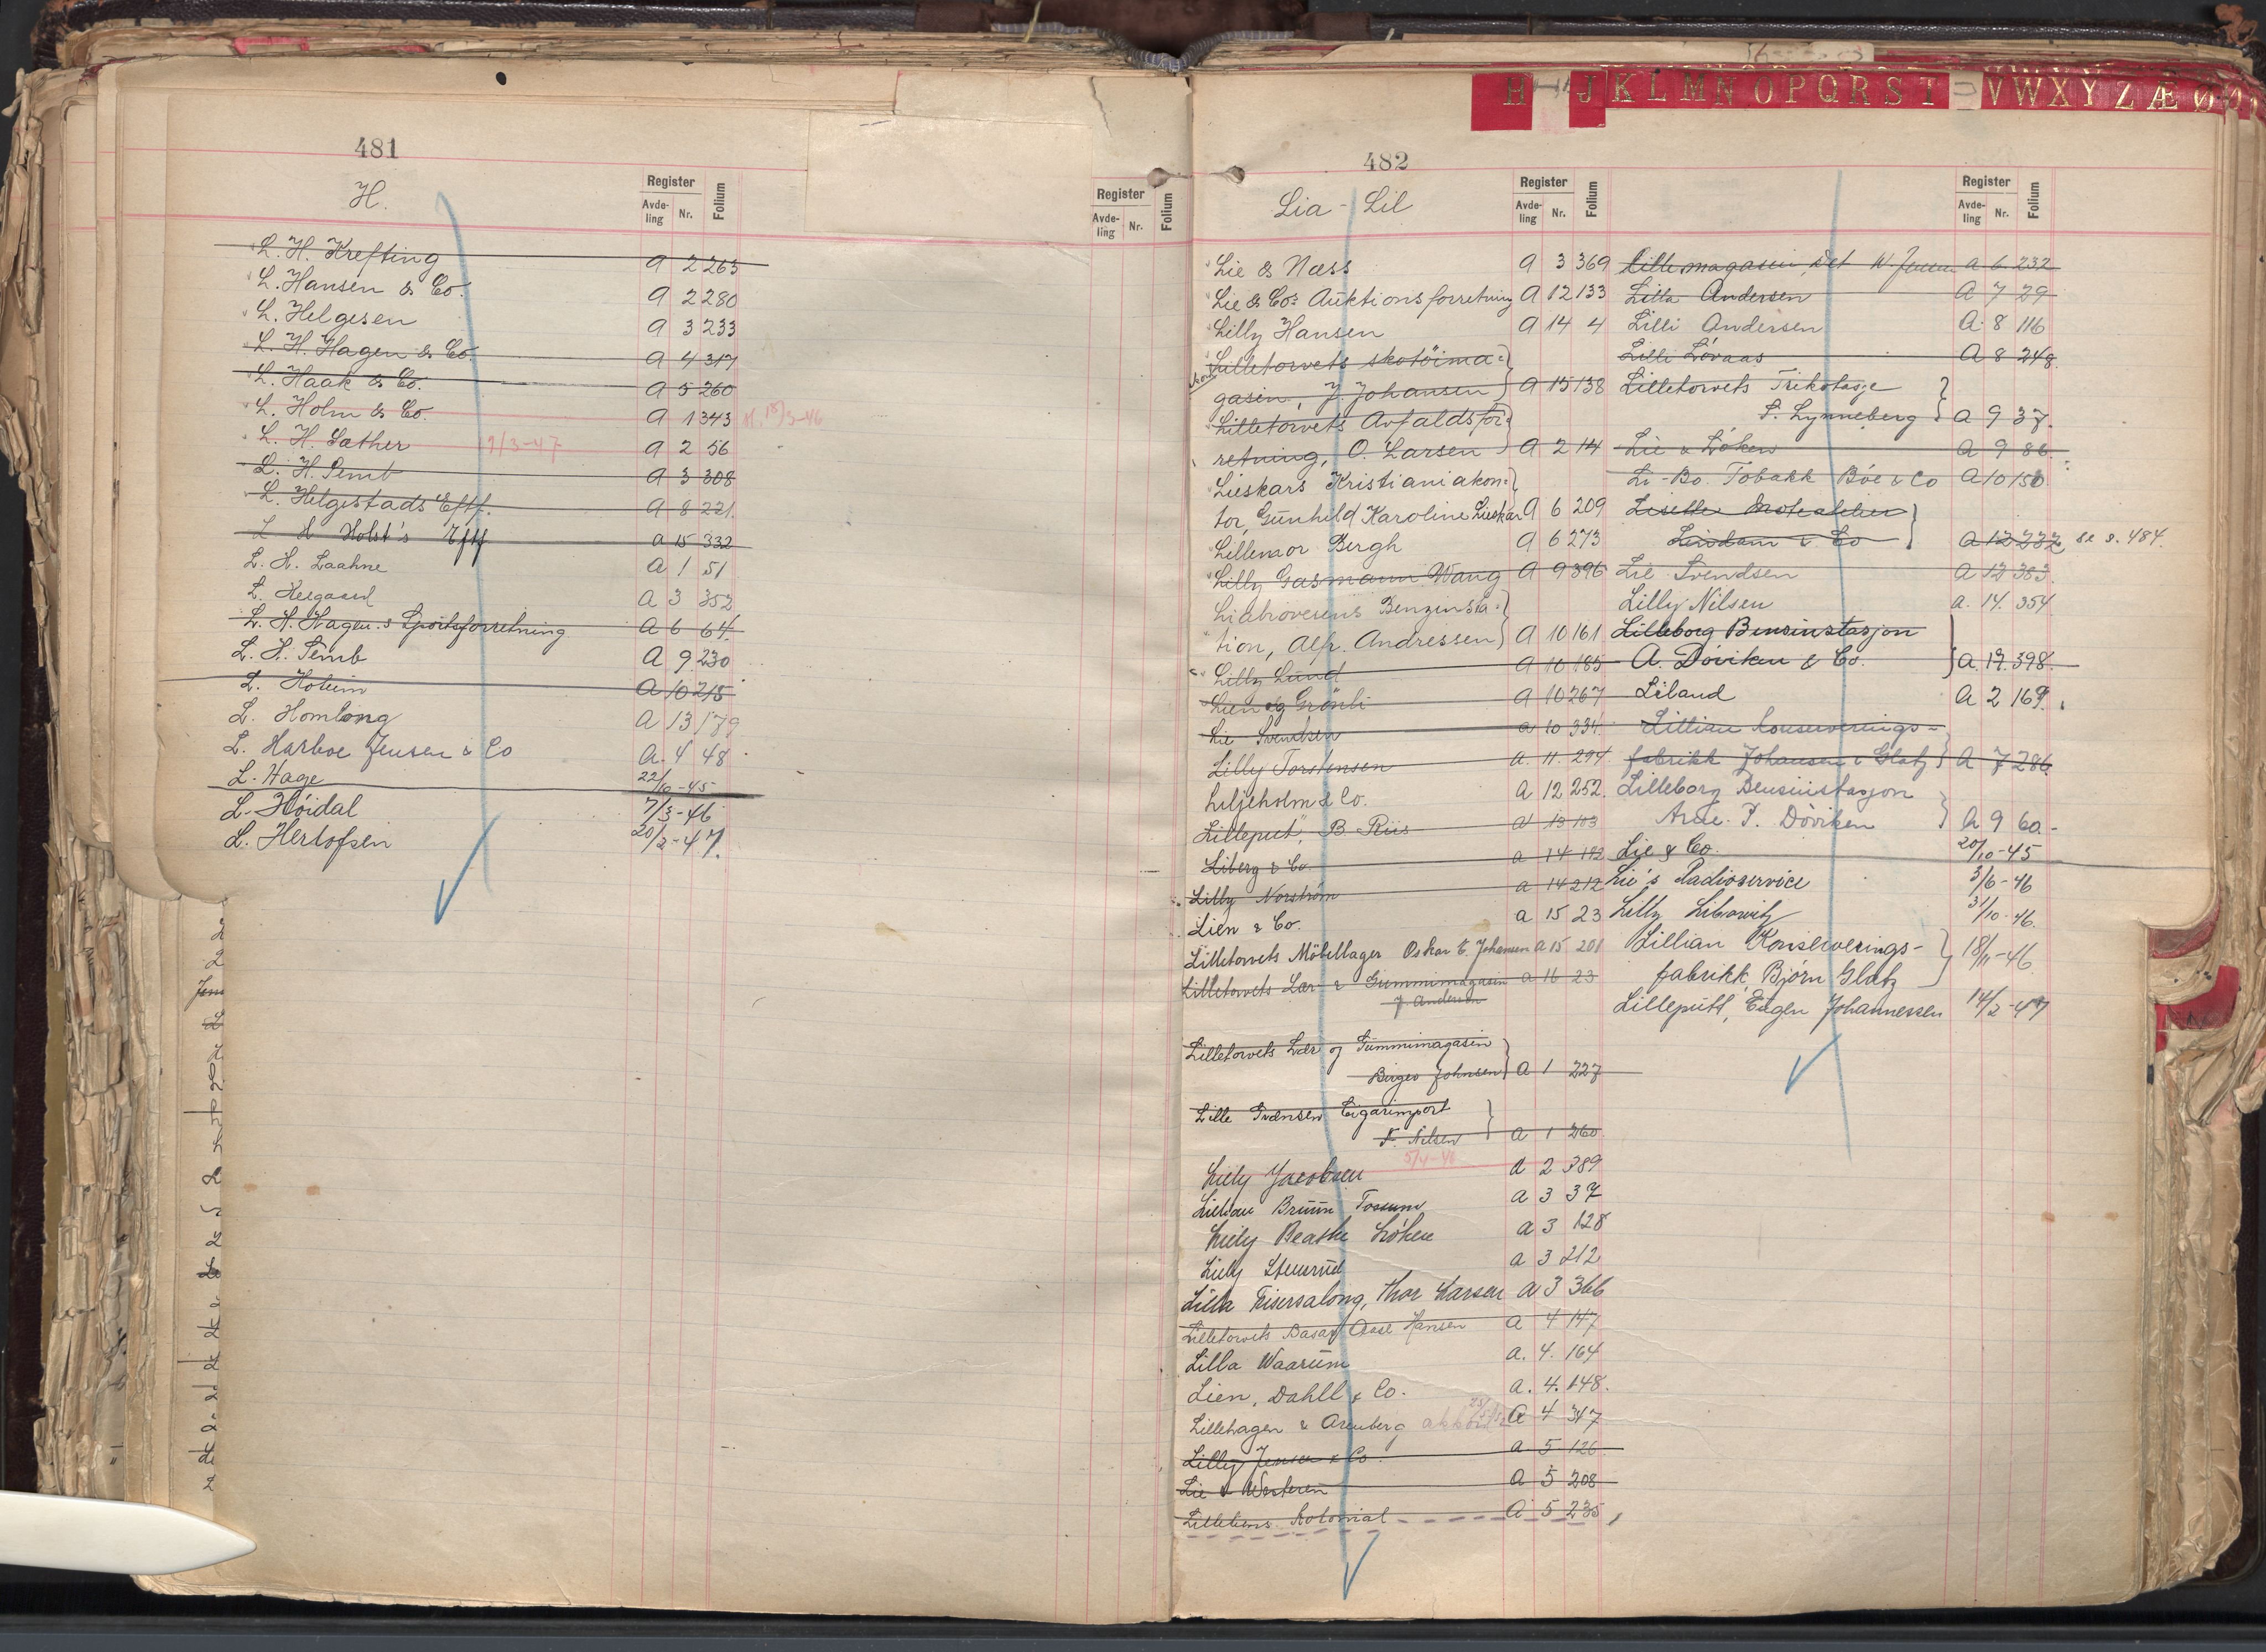 481
H.
Register
Avde-
ling
Nr.
Folium
L. H. Krefting A 2 263
L. Hansen & Co. A 2 280
L. Helgesen A 3 233
L. H. Hagen & Co. A 4 317
L. Haak & Co. A 5 260
L. Holm & Co. A 1 343 15/3-46
L. H. Sæther 19/3-47 A 2 56
L. H. Semb A 3 308
L. Helgestads Eftf. A 8 221
L H Holst's Eftf A 15 332
L. H. Laahne A 1 51
L. Heegaard A 3 352
L. H. Hagen.s Sportsforretning A 6 64.
L. H. Semb A 9 230
L. Holum A 10 215
L. Homlong A 13 179
L. Harboe Jensen & Co A. 4 48
L. Hage 22/10-45
L. Höidal 7/3-46
L. Herlofsen 20/2-47.
Register
Avde-
ling
Nr.
Folium
482
Lia - Lil
Register
Avde-
ling
Nr.
Folium
Lie & Næss A 3 369
Lie & Co.s Auktionsforretning A 12 133
Lilly Hansen A 14 4
Lilletorvets skotöima-
gasin, J. Johansen A 15 138
Lilletorvets Avfaldsfor-
retning, O. Larsen A 2 14
Lieskars Kristianiakon-
tor, Gunhild Karoline Lieskar A 6 209
Lillemor Bergh A 6 273
Lilly Gasmann Wang A 9 396
Liabroveiens Benzinsta-
tion, Alfr. Andressen A 10 161
Lilly Lund A 10 185
Lien og Grönli A 10 267
Lie Svendsen A 10 334
Lilly Torstensen A. 11. 294.
Liljeholm & Co. A 12 252.
Lilleput", B. Riis A 13 103
Liberg & Co A 14 192
Lilly Norström A 14 212
Lien & Co. A 15 23
Lilletorvets Möbellager Oskar E. Johansen A 15 201
Lilletorvets Lær & Gummimagasin A 16 23
J. Andersen
Lilletorvets Lær og Gummimagasin
Birger Johnsen A 1 227
Lille Svensen Cigarimport
F. Nilsen A 1 260
5/4-46
Lilly Jacobsen A 2 389
Lillian Bruun Tossum A 3 37
Lilly Beathe Löken A 3 128
Lilly Stensrud A 3 212
Lilla Frisersalong, Thor Larsen A 3 366
Lilletorvets Basar Aase Hansen A 4 147
Lilla Waarum A. 4. 164
Lien, Dahll & Co. A. 4. 148.
Lillehagen & Arenberg A 4 347
Lilly Jensen & Co. A 5 126
Lie & Westeren A 5 208
Lilleliens Kolonial A 5 235
Register
Avde-
ling
Nr.
Folium
Lillemagasin, Det W. Jensen A 6 232
Lilla Andersen A 7 29
Lilli Andersen A. 8 116
Lilli Lövaas A 8 248.
Lilletorvets Trikotasje
S. Lynneberg A 9 37.
Lie & Löken A 9 86.
Li-Bo. Tobakk Böe & Co A 10 150
Liselle Moteatelier
Lindam & Co A 12 237 se s. 484.
Lie Svendsen A 12 383.
Lilly Nilsen A. 14. 354
Lilleborg Bensinstasjon
A. Döviken & Co. A. 17. 398.
Liland A 2 169.
Lillian Konserverings-
fabrikk Johansen & Glatz A 7 286
Lilleborg Bensinstasjon
Arne. P. Döviken A 9 60.
Lie & Co. 20/10-45
Lie's Radioservice 3/6-46
Lilly Libowitz 31/10-46.
Lillian Konserverings-
fabrikk, Björn Glatz 18/11-46
Lilleputt, Eugen Johannessen 14/2-47
H J K L M N O P Q R S T U V W X Y Z Æ Ø